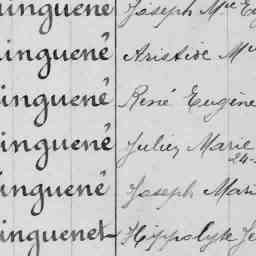 inguené Joseph Mie
inguené Aristide Me
inguené René Eugène
inguené Jules Marie
24-
inguené Joseph Mari
inguenet Hippolyte Je